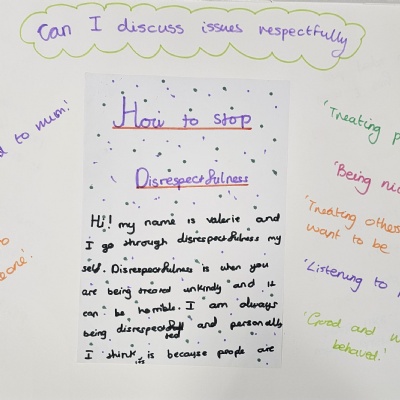 Can I discuss issues respectfully
d to mum!
How to stop
Disrespectfulness
Hi! my name is valerie and
I go through disrespectfulness my
self. Disrespectfulness is when you
are being treated unkindly and it
can be horrible. I am always
being disrespected and personally
I think it's is because people are
'Treating p
'Being nic
'Treating others
want to be
'Listening to
'Good and w
behaved.'